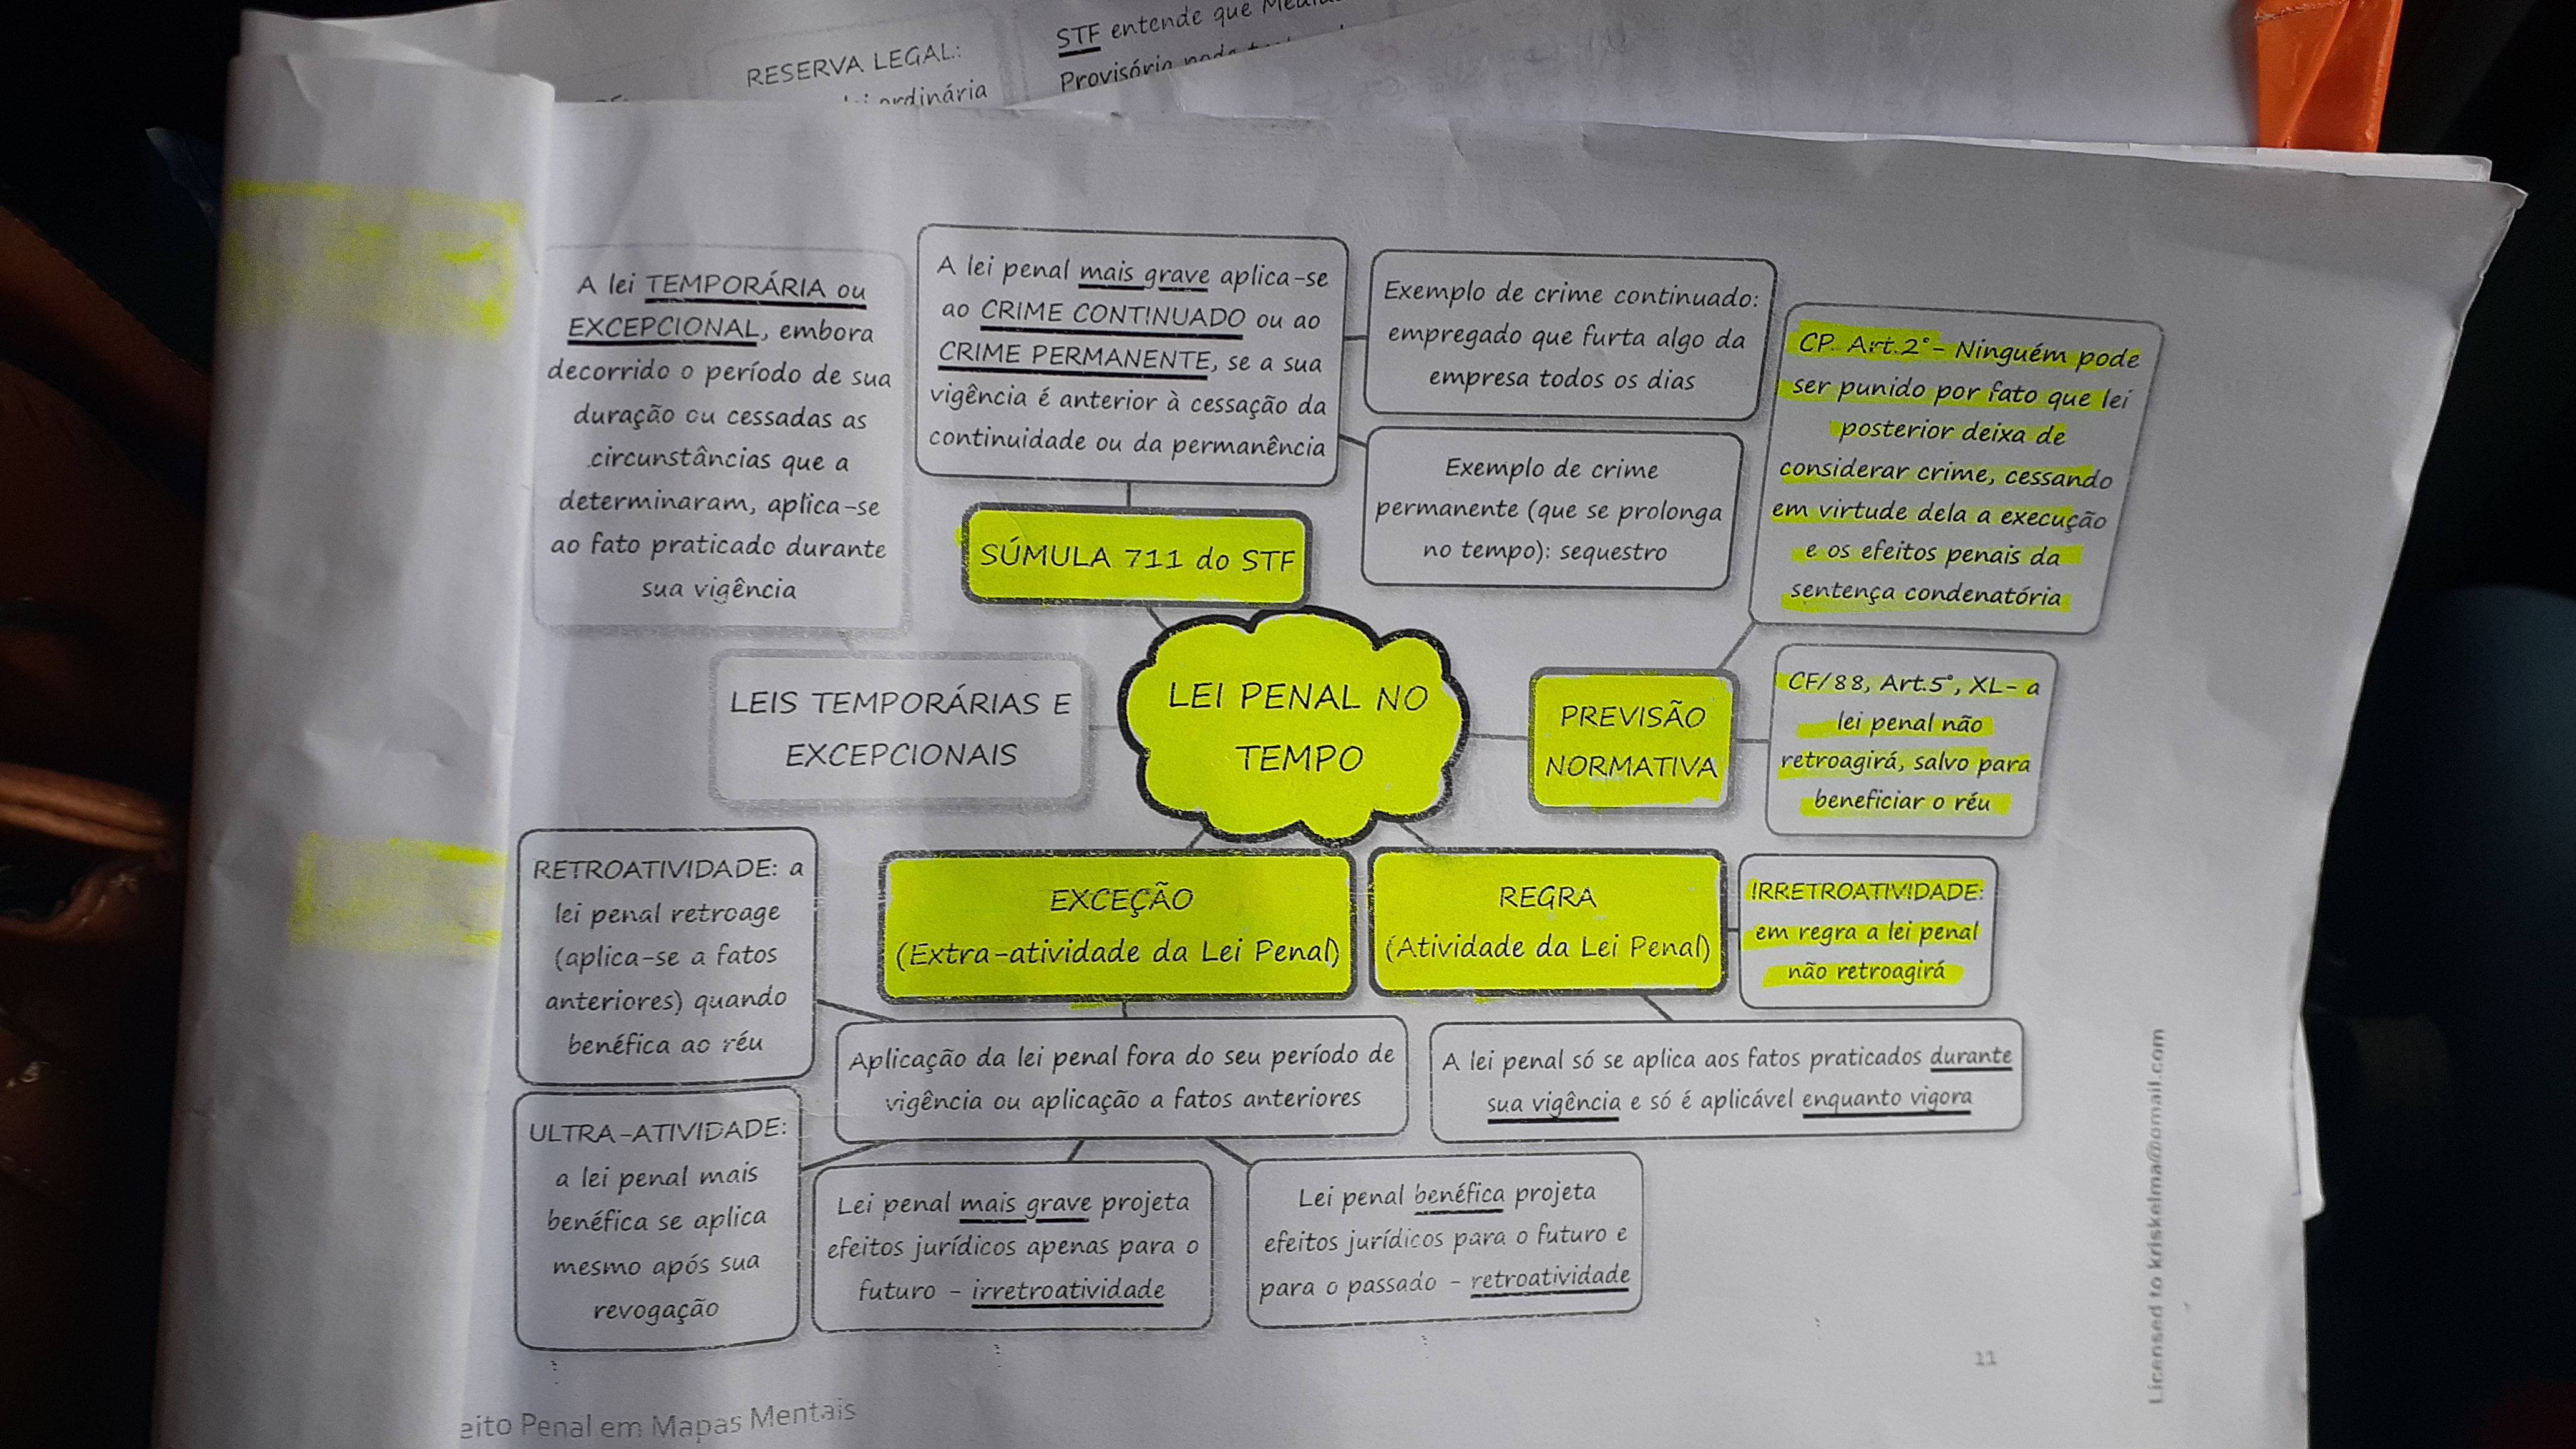 STF entende que
RESERVA LEGAL:
Provisória
ordinária
A lei TEMPORÁRIA ou
EXCEPCIONAL, embora
decorrido o período de sua
duração ou cessadas as
circunstâncias que a
determinaram, aplica-se
ao fato praticado durante
sua vigência
A lei penal mais grave aplica-se
ao CRIME CONTINUADO ou ao
CRIME PERMANENTE, se a sua
vigência é anterior à cessação da
continuidade ou da permanência
Exemplo de crime continuado:
empregado que furta algo da
empresa todos os dias
Exemplo de crime
permanente (que se prolonga
no tempo): sequestro
CP. Art.2°- Ninguém pode
ser punido por fato que lei
posterior deixa de
considerar crime, cessando
em virtude dela a execução
e os efeitos penais da
sentença condenatória
SÚMULA 711 do STF
LEIS TEMPORÁRIAS E
EXCEPCIONAIS
LEI PENAL NO
TEMPO
PREVISÃO
NORMATIVA
CF/88, Art.5°, XL- a
lei penal não
retroagirá, salvo para
beneficiar o réu
RETROATIVIDADE: a
lei penal retroage
(aplica-se a fatos
anteriores) quando
benéfica ao réu
EXCEÇÃO
(Extra-atividade da Lei Penal)
REGRA
(Atividade da Lei Penal)
IRRETROATIVIDADE:
em regra a lei penal
não retroagirá
Aplicação da lei penal fora do seu período de
vigência ou aplicação a fatos anteriores
A lei penal só se aplica aos fatos praticados durante
sua vigência e só é aplicável enquanto vigora
ULTRA-ATIVIDADE:
a lei penal mais
benéfica se aplica
mesmo após sua
revogação
Lei penal mais grave projeta
efeitos jurídicos apenas para o
futuro - irretroatividade
Lei penal benéfica projeta
efeitos jurídicos para o futuro e
para o passado - retroatividade
11
eito Penal em Mapas Mentais
Licensed to kriskelma@gmail.com